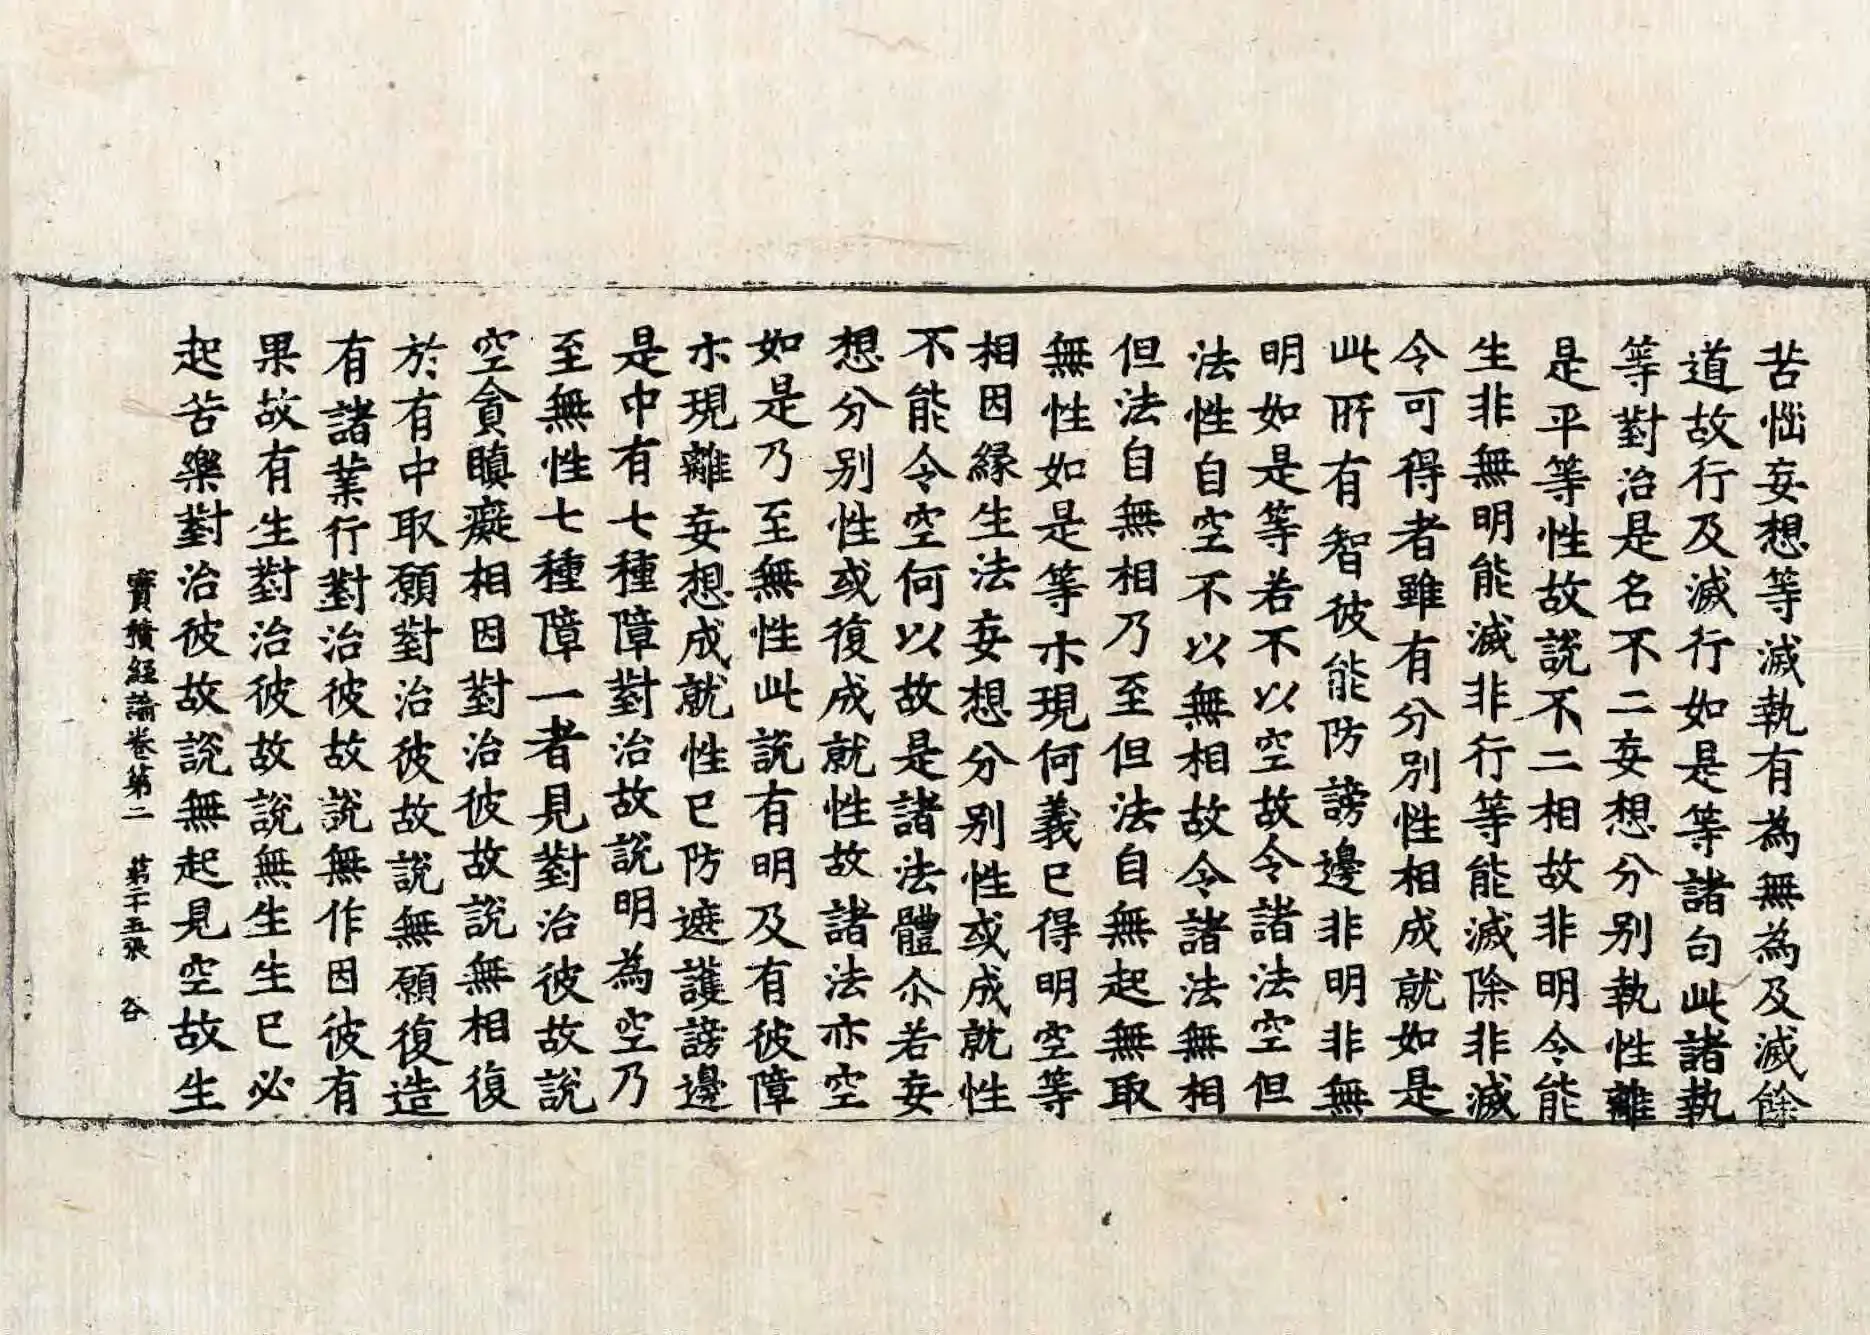 苦惱妄想等滅執有為無為及滅餘
道故行及滅行如是等諸句此諸執
等對治是名不二妄想分別執性離
是平等性故說不二相故非明令能
生非無明能滅非行等能滅除非滅
令可得者雖有分別性相成就如是
此所有智彼能防謗邊非明非無
明如是等若不以空故令諸法空但
法性自空不以無相故令諸法無相
但法自無相乃至但法自無起無取
無性如是等亦現何義已得明空等
相因緣生法妄想分別性或成就性
不能令空何以故是諸法體尒若妄
想分別性或復成就性故諸法亦空
如是乃至無性此說有明及有彼障
亦現離妄想成就性已防遮護謗邊
是中有七種障對治故說明為空乃
至無性七種障一者見對治彼故說
空貪瞋癡相因對治彼故說無相復
於有中取願對治彼故說無願復造
有諸業行對治彼故說無作因彼有
果故有生對治彼故說無生生已必
起苦樂對治彼故說無起見空故生
寶積經論卷第二 第二十五張 谷